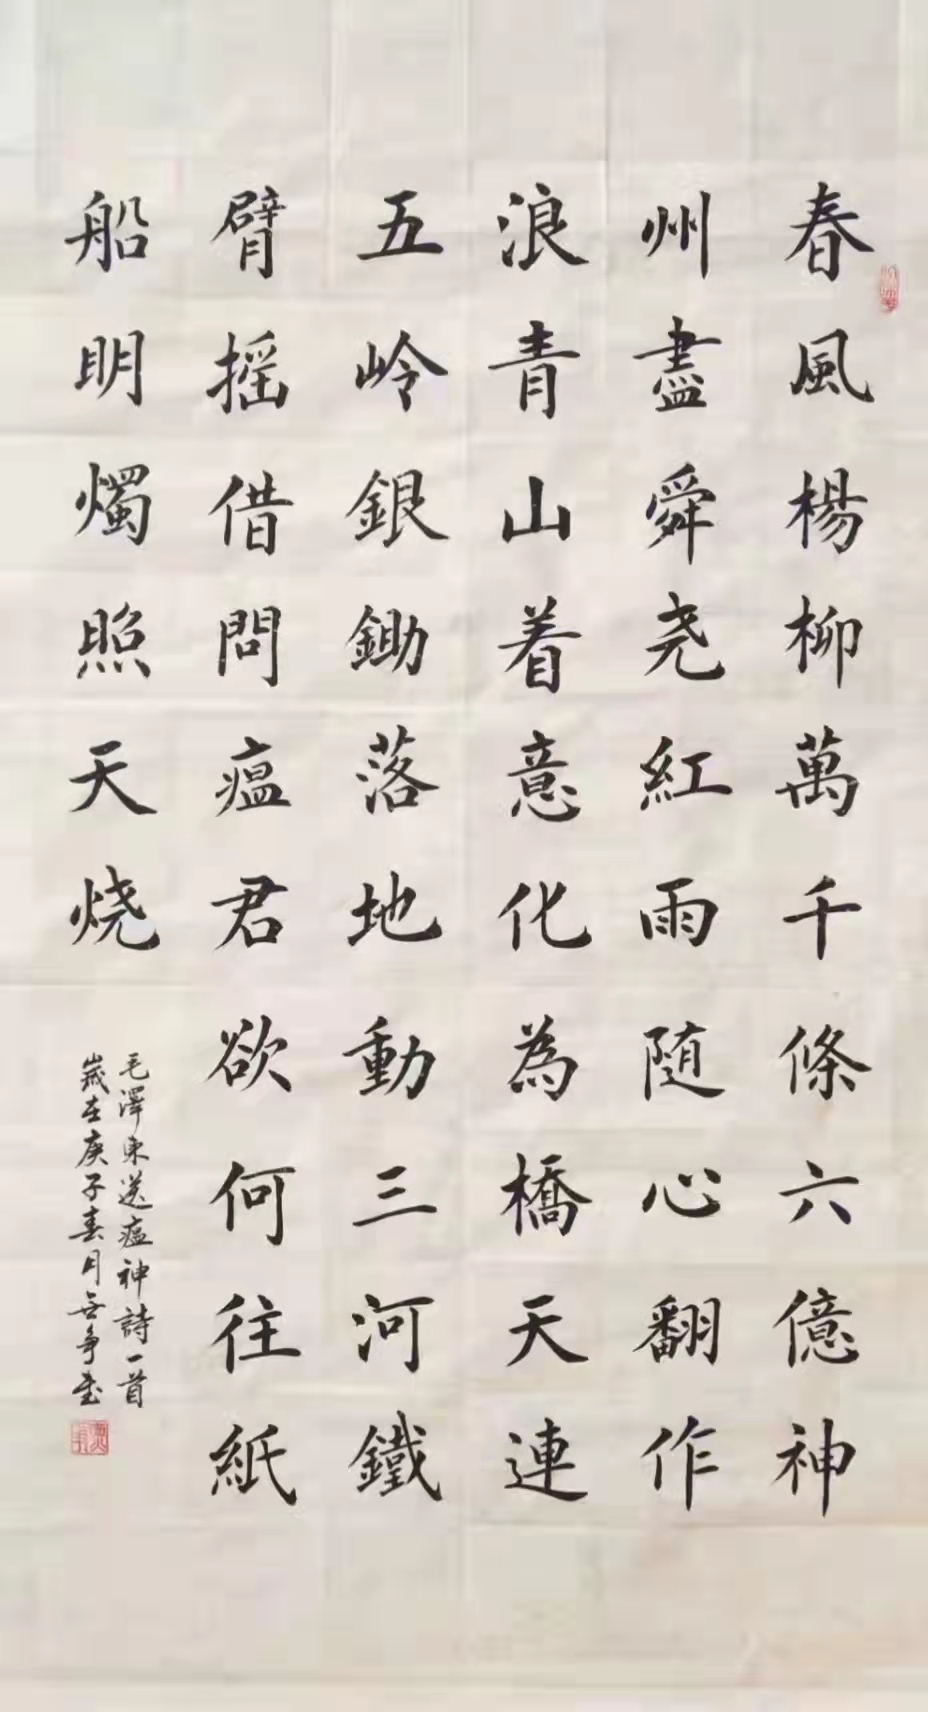 春風楊柳萬千條六億神
州盡舜尧紅雨随心翻作
浪青山着意化為橋天連
五岭銀鋤落地動三河鐵
臂摇借問瘟君欲何往紙
船明燭照天烧
毛澤東送瘟神詩一首
嵗在庚子春月無争書